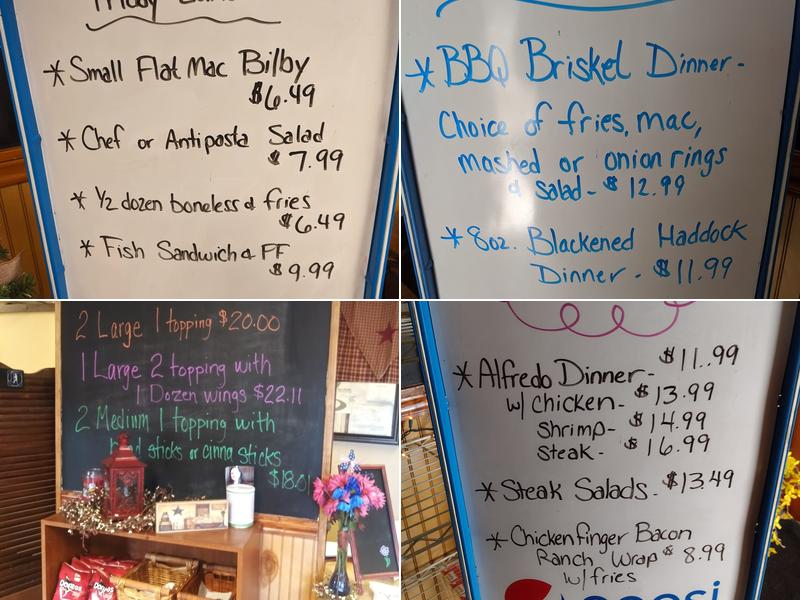 * Small Flat Mac Bilby
$6.49
* Chef or Antipasta Salad
$7.99
* 1/2 dozen boneless & fries
$6.49
* Fish Sandwich & FF
$9.99
* BBQ Brisket Dinner -
Choice of fries, mac,
mashed or onion rings
& salad - $12.99
* 8oz. Blackened Haddock
Dinner - $11.99
2 Large 1 topping $20.00
1 Large 2 topping with
1 Dozen wings $22.11
2 Medium 1 topping with
sticks or cinna sticks
$18.01
Doritos
$11..99
* Alfredo Dinner -
w/ chicken - $13.99
shrimp - $14.99
steak - $16.99
* Steak Salads - $13.49
* Chickenfinger Bacon
Ranch Wrap $8.99
w/ fries
pepsi